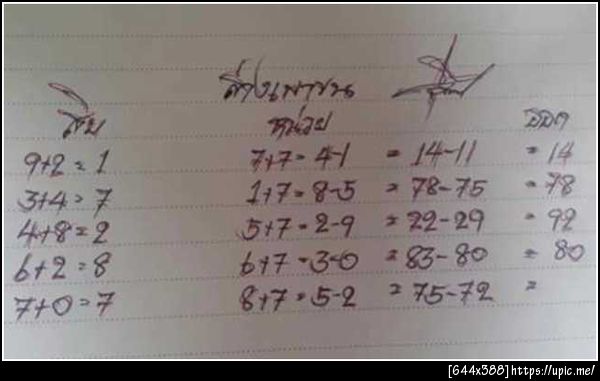 ล่างเพาชน
สิบ หน่วย ออก
9+2=1 7+7=4-1 =14-11 =14
3+4=7 1+7=8-5 =78-75 =78
4+8=2 5+7=2-9 =22-29 =92
6+2=8 6+7=3-0 =83-80 =80
7+0=7 8+7=5-2 =75-72 =
[644x388]https://upic.me/